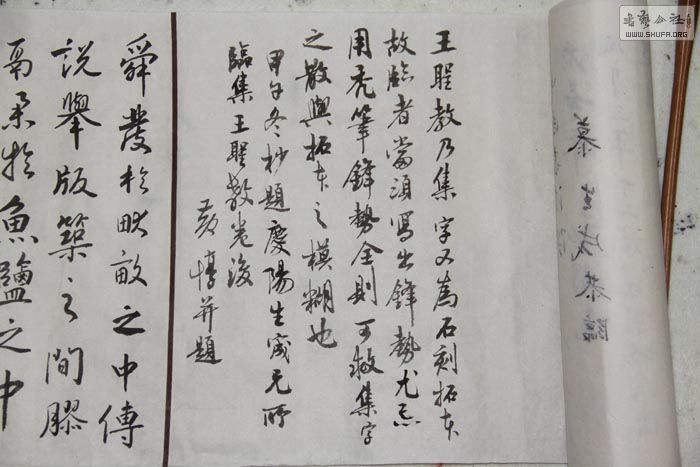 書藝公社
WWW.SHUFA.ORG
恭臨
王聖教乃集字又為石刻拓本
故臨者當須寫出鋒勢尤忌
用禿筆鋒勢全則可救集字
之散與拓本之模糊也
甲午冬杪題慶陽生成兄所
臨集王聖教卷後
并題
舜發於畎畝之中傅
說舉版築之間膠
鬲舉於魚鹽之中